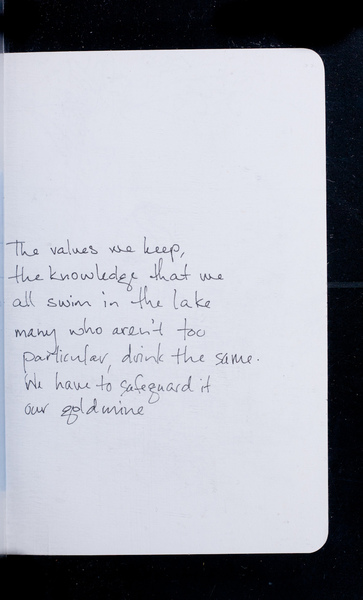 The values we keep,
the knowledge that we
all swim in the lake
many who aren't too
particular, drink the same.
We have to safeguard it
our goldmine